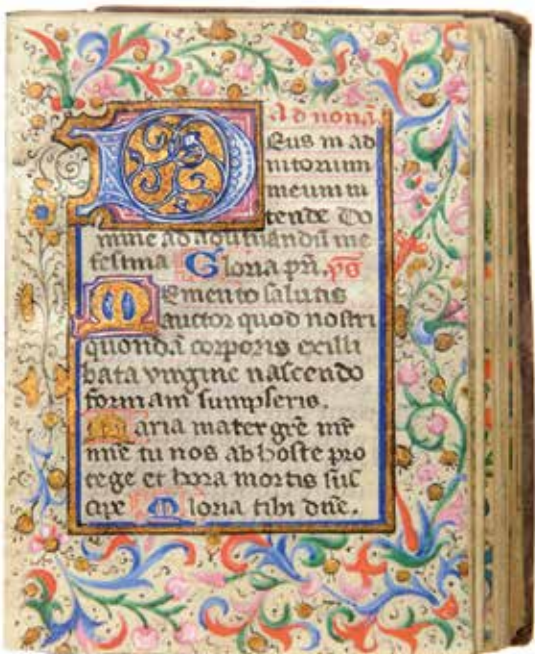 Ad nonã
Deus in ad
iutorium
meum in
tende Do
mine ad adiuuandũ me
festina Gloria pri. ps
Memento salutis
auctor quod nostri
quondã corporis ex illi
bata virgine nascendo
formam sumpseris.
Maria mater grẽ mr̃
mie tu nos ab hoste pro
tege et hora mortis sus
cipe Gloria tibi dñe.